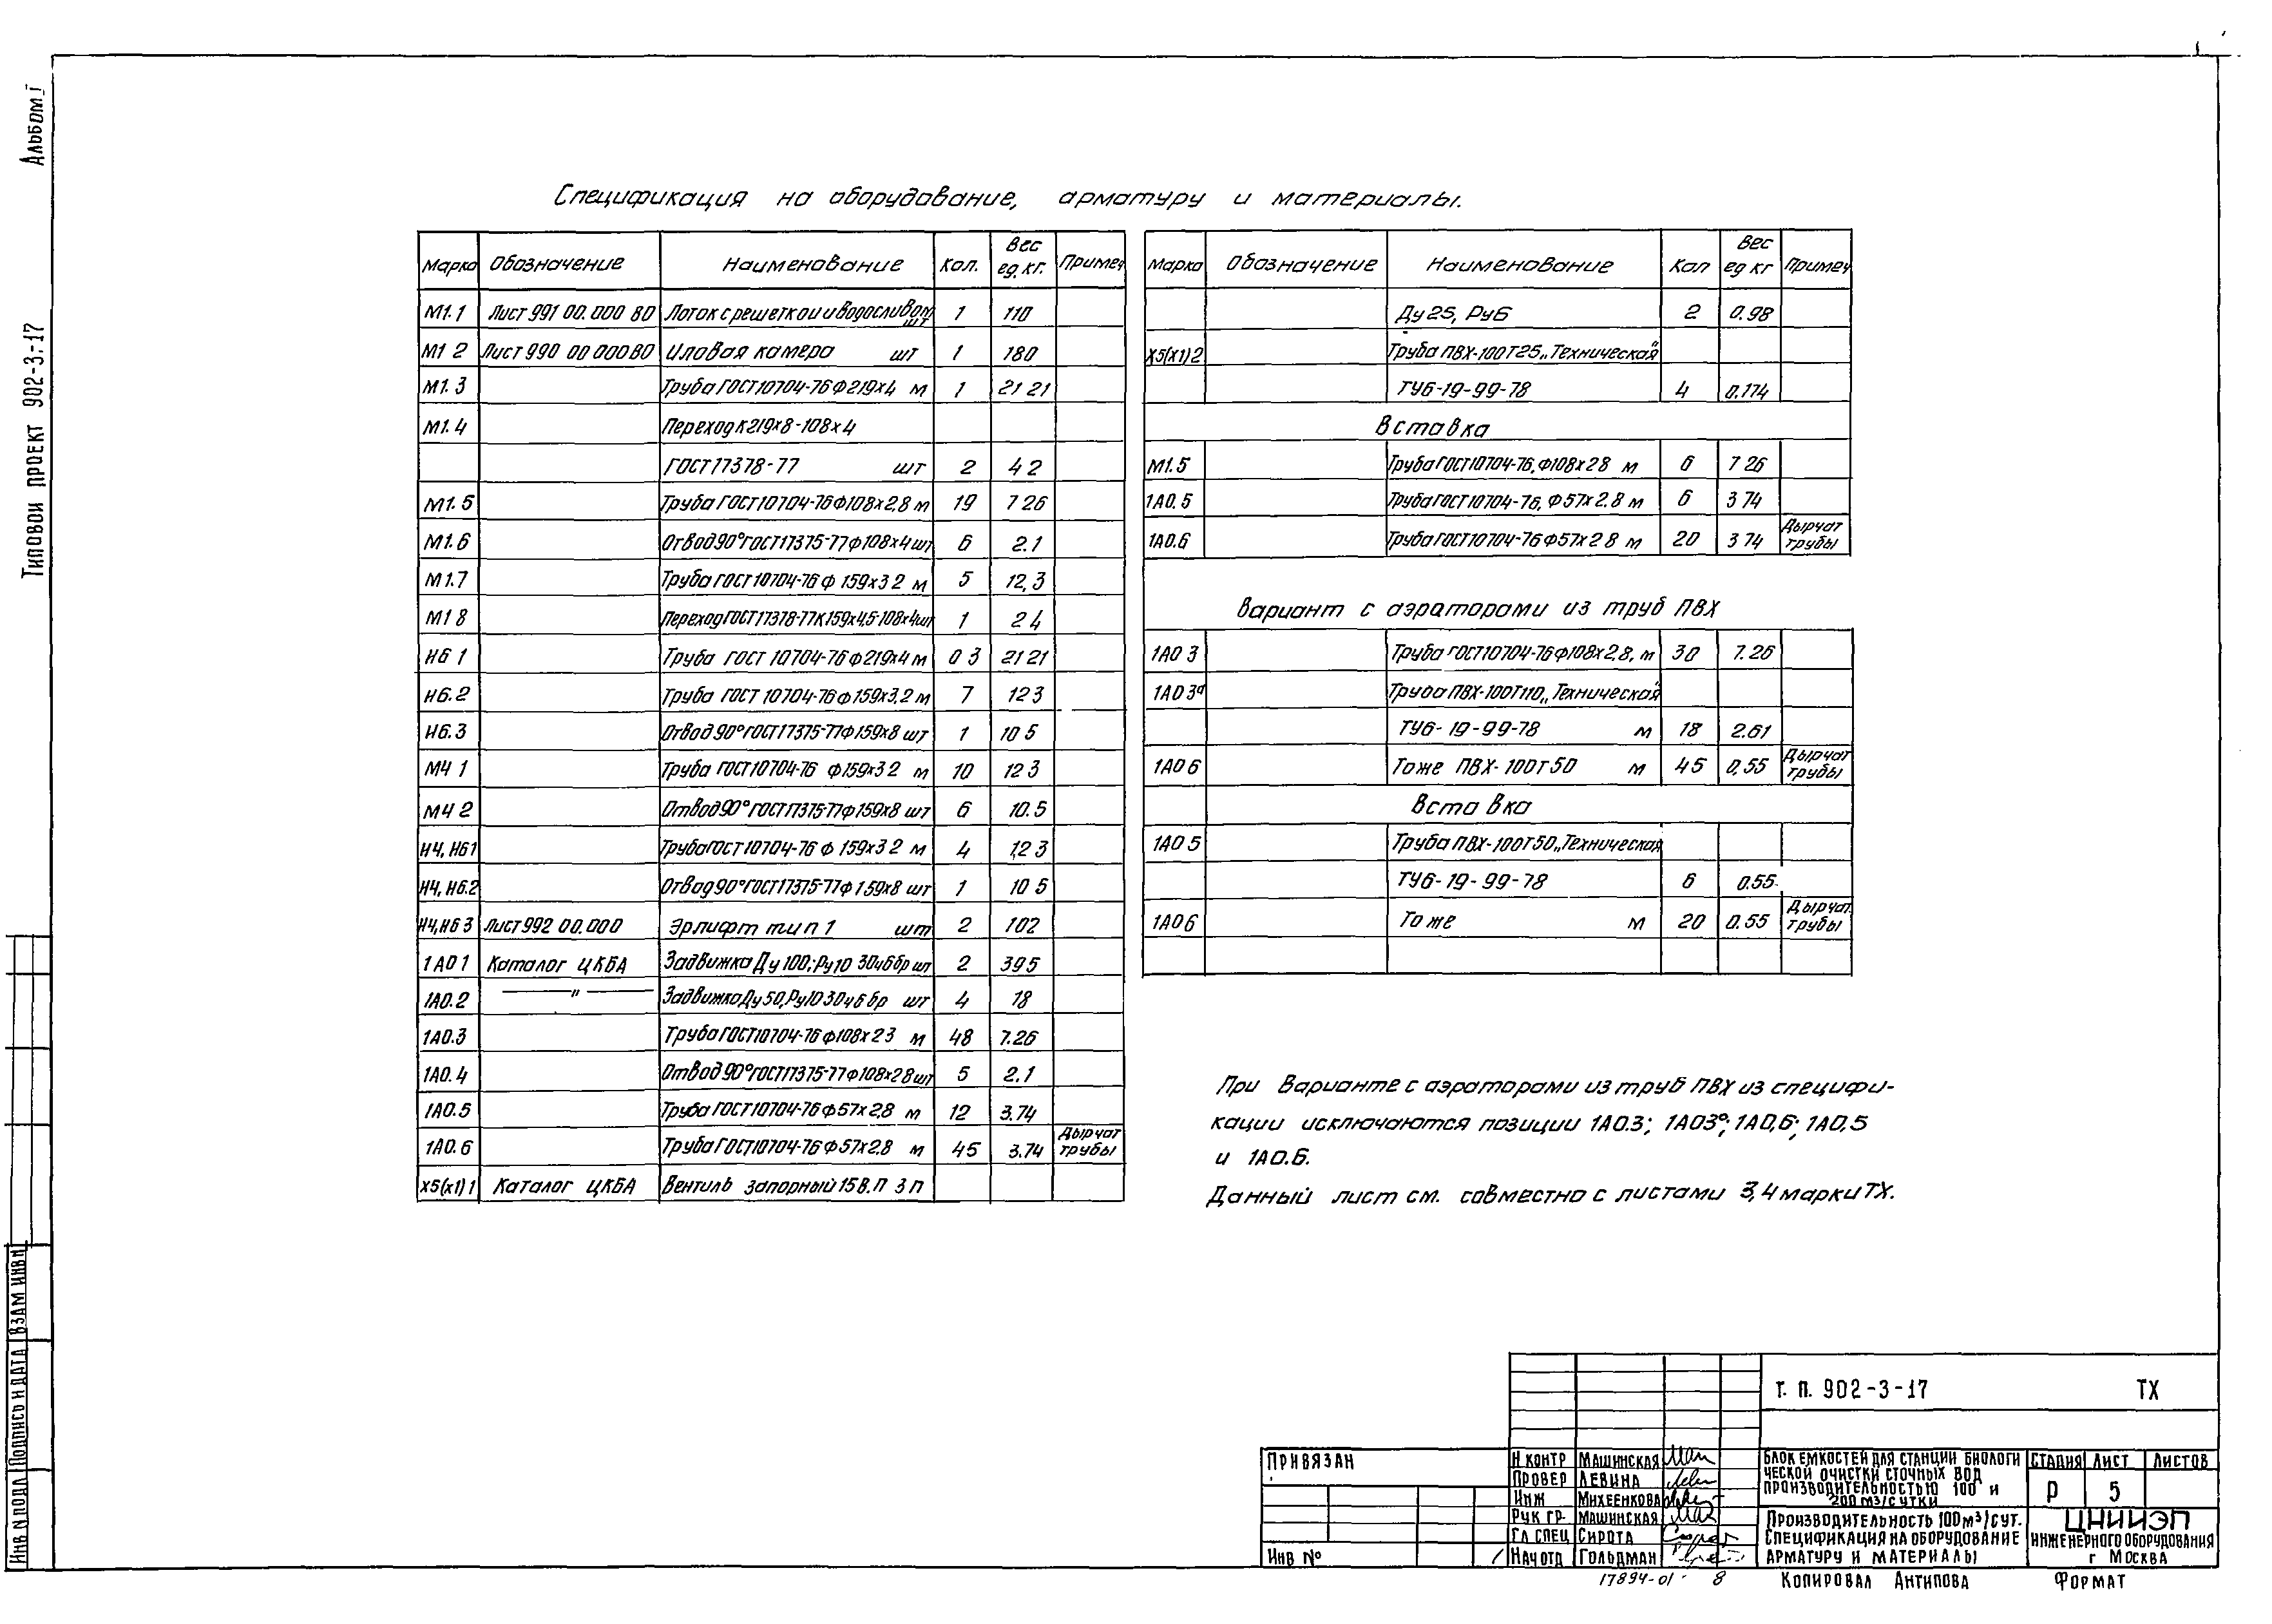 Альбом I
Типовой проект 902-3-17
Спецификация на оборудование, арматуру и материалы.
Марка Обозначение Наименование Кол. Вес ед. кг. Примеч
М1.1 Лист 991 00.000 ВО Лоток с решеткой и водосливом шт 1 110
М1 2 Лист 990 00 000 ВО Иловая камера шт 1 180
М1.3 Труба ГОСТ 10704-76 Ф219х4 м 1 21 21
М1.4 Переход К219х8-108х4
ГОСТ 17378-77 шт 2 4 2
М1.5 Труба ГОСТ 10704-76 Ф108х2,8 м 19 7 26
М1.6 Отвод 90° ГОСТ 17375-77 Ф108х4 шт 6 2.1
М1.7 Труба ГОСТ 10704-76 Ф 159х3 2 м 5 12,3
М1 8 Переход ГОСТ 17378-77 К159х4,5-108х4 шт 1 2 4
И6 1 Труба ГОСТ 10704-76 Ф219х4 м 0 3 21 21
И6.2 Труба ГОСТ 10704-76 Ф159х3,2 м 7 12 3
И6.3 Отвод 90° ГОСТ 17375-77 Ф159х8 шт 1 10 5
М4 1 Труба ГОСТ 10704-76 Ф159х3 2 м 10 12 3
М4 2 Отвод 90° ГОСТ 17375-77 Ф159х8 шт 6 10.5
И4, И6 1 Труба ГОСТ 10704-76 Ф 159х3 2 м 4 12 3
И4, И6.2 Отвод 90° ГОСТ 17375-77 Ф 159х8 шт 1 10 5
И4, И6 3 Лист 992 00.000 Эрлифт тип 1 шт 2 102
1А0 1 Каталог ЦКБА Задвижка Ду 100; Ру10 30ч6бр шт 2 39 5
1А0.2 —"— Задвижка Ду 50, Ру10 30ч6 бр шт 4 18
1А0.3 Труба ГОСТ 10704-76 Ф108х2 3 м 48 7.26
1А0.4 Отвод 90° ГОСТ 17375-77 Ф108х28 шт 5 2.1
1А0.5 Труба ГОСТ 10704-76 Ф57х2,8 м 12 3.74
1А0.6 Труба ГОСТ 10704-76 Ф57х2,8 м 45 3.74 Дырчат трубы
Х5(Х1) 1 Каталог ЦКБА Вентиль запорный 15В.П 3 П
Марка Обозначение Наименование Кол Вес ед кг Примеч
Ду 25, Ру6 2 0.98
Х5(Х1)2 Труба ПВХ-100Т25 „Техническая"
ТУ6-19-99-78 4 0.174
Вставка
М1.5 Труба ГОСТ 10704-76, Ф108х2 8 м 6 7 26
1А0.5 Труба ГОСТ 10704-76, Ф57х2.8 м 6 3 74
1А0.6 Труба ГОСТ 10704-76 Ф57х2 8 м 20 3 74 Дырчат трубы
Вариант с аэраторами из труб ПВХ
1А0 3 Труба ГОСТ 10704-76 Ф108х2,8, м 30 7.26
1А0 3а Труба ПВХ-100Т110 „Техническая"
ТУ6-19-99-78 м 18 2.61
1А0 6 Тоже ПВХ-100Т50 м 45 0,55 Дырчат трубы
Вставка
1А0 5 Труба ПВХ-100Т50 „Техническая
ТУ6-19-99-78 6 0.55
1А0 6 Тоже м 20 0.55 Дырчат. трубы
При Варианте с аэраторами из труб ПВХ из специфи-
кации исключаются позиции 1А0.3; 1А03а; 1А0,6; 1А0,5
и 1А0.6.
Данный лист см. совместно с листами 3,4 марки ТХ.
Инв N подл Подпись и дата Взам инв N
Т. П. 902-3-17 ТХ
Привязан
Инв №
Н контр Машинская
Провер Левина
Инж Михеенкова
Рук гр. Машинская
Гл спец Сирота
Нач отд Гольдман
Блок емкостей для станции биологи
ческой очистки сточных вод
производительностью 100 и
200 м3/сутки
Стадия Лист Листов
Р 5
Производительность 100 м³/сут.
Спецификация на оборудование
арматуру и материалы
ЦНИИЭП
инженерного оборудования
г Москва
17894-01 8
Копировал Антипова Формат